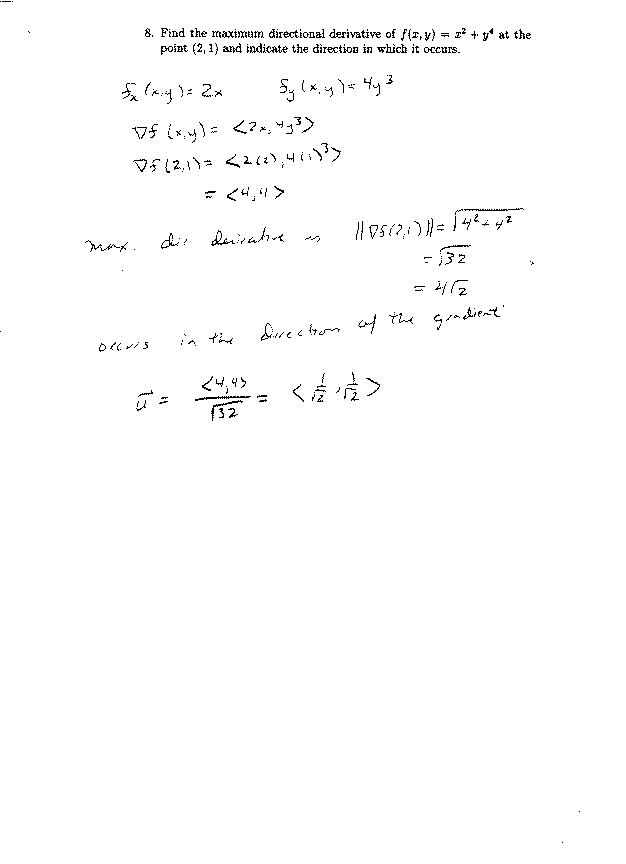 8. Find the maximum directional derivative of f(x, y) = x² + y⁴ at the
point (2, 1) and indicate the direction in which it occurs.
fx (x,y) = 2x   fy (x,y) = 4y³
∇f (x,y) = <2x, 4y³>
∇f (2,1) = <2(2), 4(1)³>
= <4,4>
max. dir derivative is ||∇f(2,1)|| = √4² + 4²
= √32
= 4√2
occurs in the direction of the gradient
u⃗ = <4,4>/√32 = <1/√2, 1/√2>